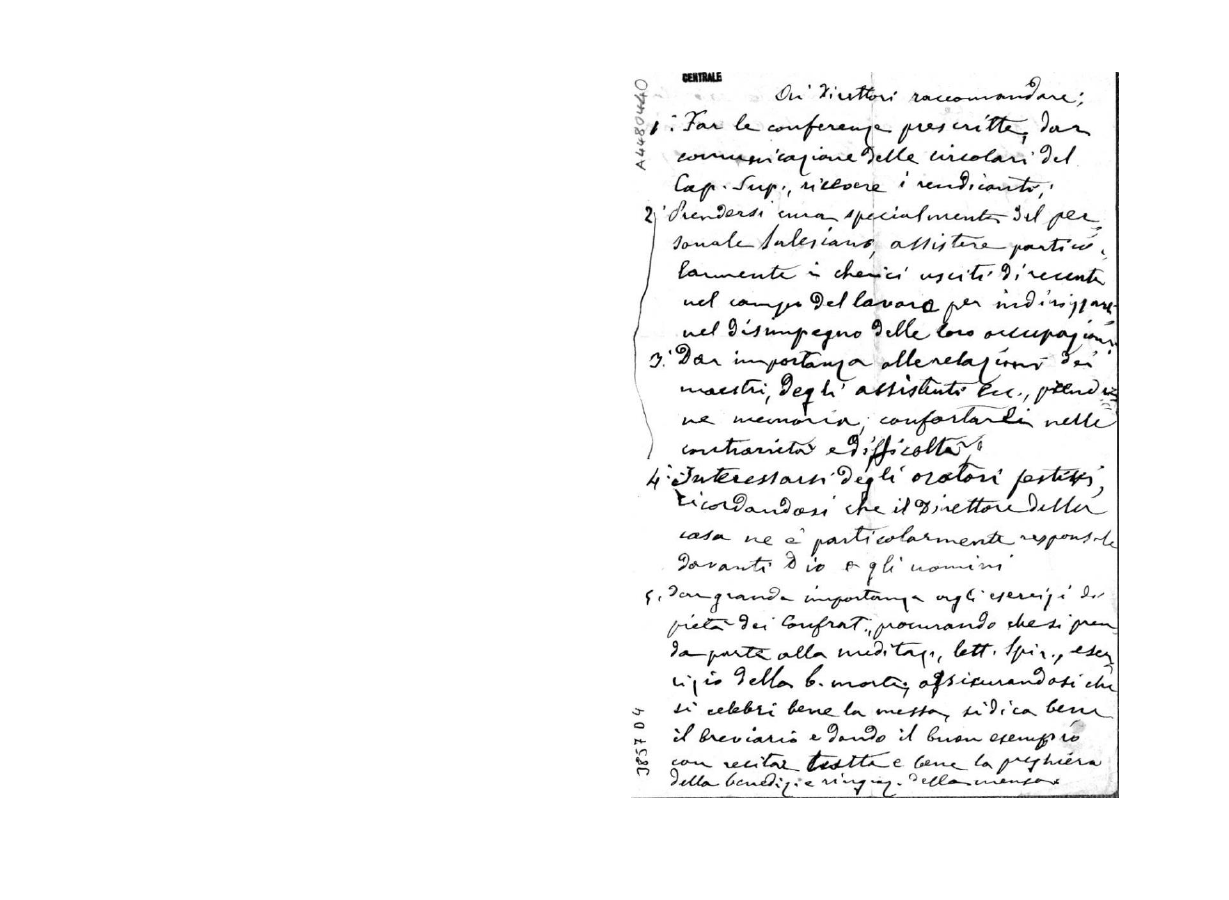 CENTRALE
A4480440
Ai Direttori raccomandare;
1: Far le conferenze prescritte, dar
comunicazione delle circolari del
Cap. Sup., ricevere i rendiconti;
2; Prendersi cura specialmente del per
sonale Salesiano, assistere partico-
larmente i chierici usciti di recente
nel campo del lavoro per indirizzare
nel disimpegno delle loro occupazioni
3: Dar importanza alle relazioni dei
maestri, degli assistenti Ecc.,
ne memoria; confortarli nelle
contrarietà e difficoltà;
4: Interessarsi degli oratori festivi,
ricordandosi che il Direttore della
casa ne è particolarmente responsale
davanti Dio e gli uomini
5. Dar grande importanza agli esercizi di
pietà dei Confrat., procurando che si pren
da parte alla meditaz., lett. Spir., eser
cizio della b. morte; assicurandosi che
si celebri bene la messa, si dica bene
il breviario e dando il buon esempio
con recitar tutta e bene la preghiera
della benediz. e ringraz. della mensa
3857D4